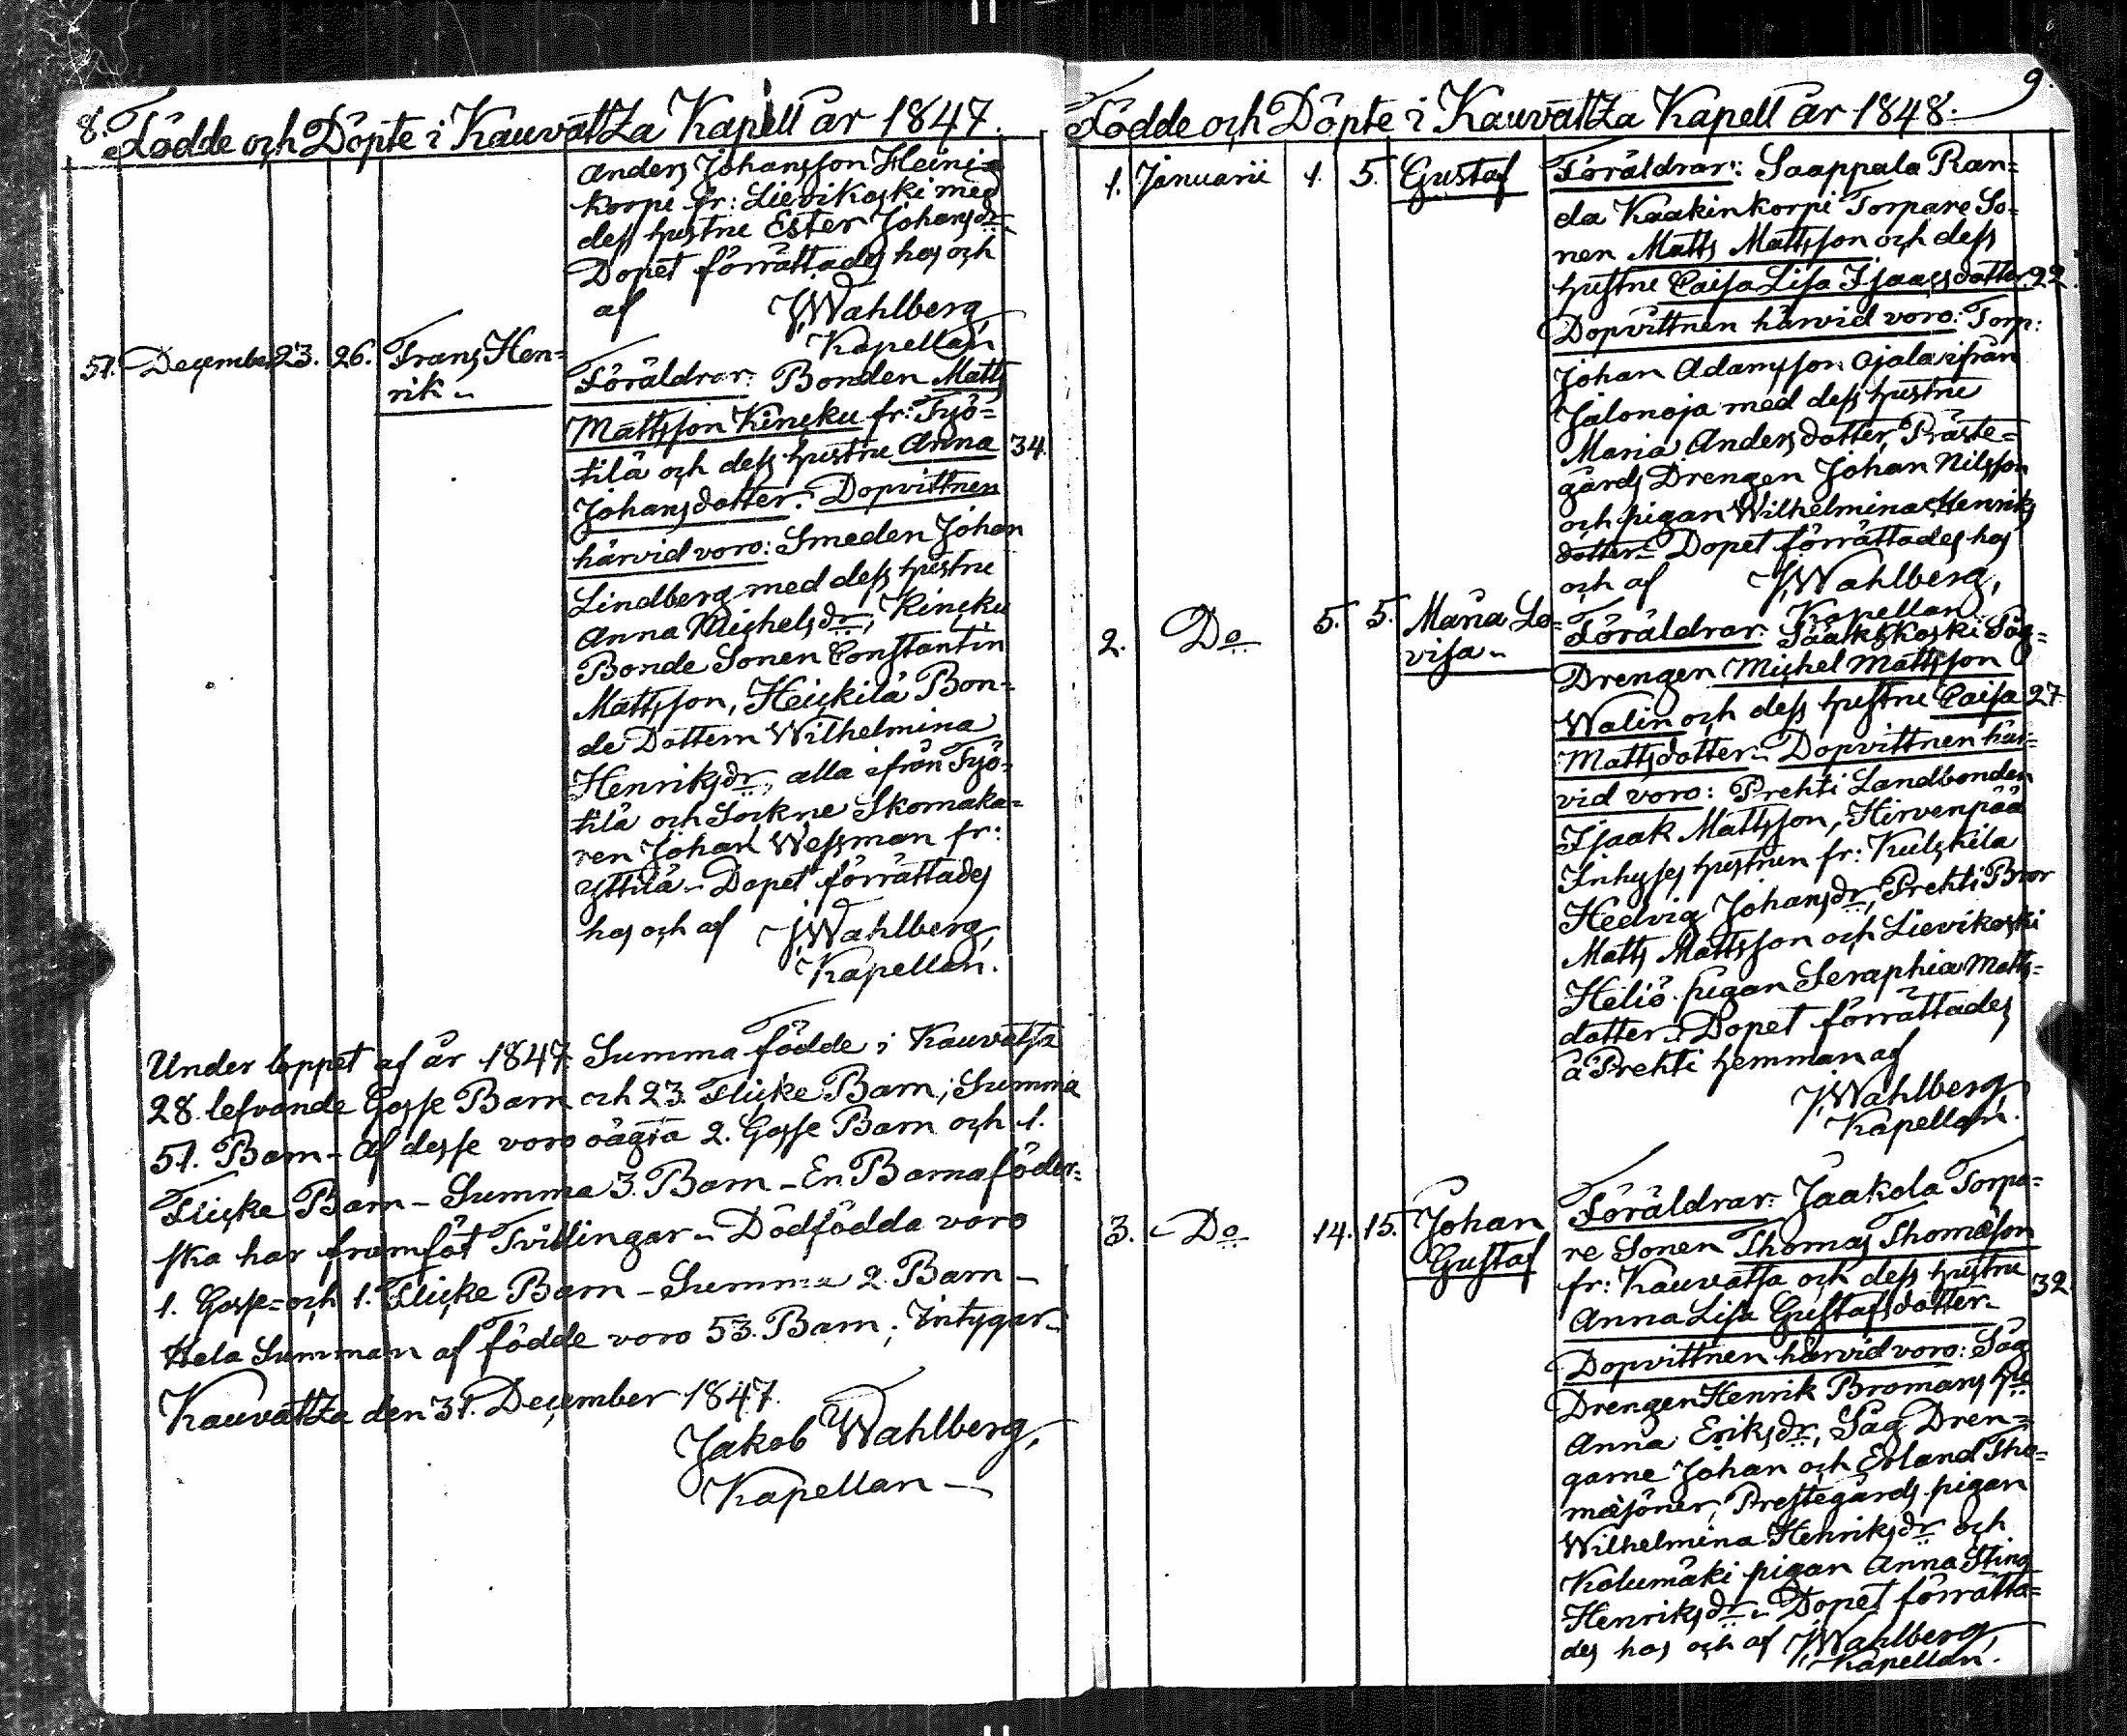 8. Födde och Döpte i Kauvatza Kapell år 1847.
Anders Johansson Heini=
korpi fr: Lievikoski med
dess hustru Ester Johansdr
Dopet förrättades hos och
af J. Wahlberg,
Kapellan
51. December 23. 26. Frans Hen=
rik
Föräldrar: Bonden Matts
Mattsson Kincku fr: Työ=
tilä och dess hustru Anna 34.
Johansdotter. Dopvittnen
härvid voro: Smeden Johan
Lindberg med dess hustru
Anna Michelsdr, Kincku
Bonde Sonen Constantin
Mattsson, Heickilä Bon=
de Dottern Wilhelmina
Henriksdr, alla ifrån Työ=
tilä och Sockne Skomaka=
ren Johan Wessman fr:
Yttilä. Dopet förrättades
hos och af J. Wahlberg,
Kapellan.
Under loppet af år 1847. Summa födde i Kauvatsa
28. lefvande Gosse Barn och 23. Flicke Barn; Summa
51. Barn - Af desse voro oägta 2. Gosse Barn och 1.
Flicke Barn - Summa 3. Barn - En Barnaföder=
ska har framföt Tvillingar - Dödfödda voro
1. Gosse= och 1. Flicke Barn - Summa 2. Barn -
Hela Summan af födde voro 53. Barn; Intygar -
Kauvatza den 31. December 1847.
Jakob Wahlberg,
Kapellan -
9.
Födde och Döpte i Kauvatza Kapell år 1848.
1. Januarii 1. 5. Gustaf
Föräldrar: Saappala Ran=
da Kaakinkorpi Torpare So=
nen Matts Mattsson och dess
hustru Caisa Lisa Isaacsdotter. 22.
Dopvittnen härvid voro: Torp:
Johan Adamsson Ojala ifrån
Jalonoja med dess hustru
Maria Andersdotter, Präste=
gårds Drengen Johan Nilsson
och pigan Wilhelmina Henriks
dotter - Dopet förrättades hos
och af J. Wahlberg,
Kapellan
2. Do 5. 5. Maria Lo=
visa
Föräldrar: Sääkskoski Såg=
Drengen Michel Mattsson
Walin och dess hustru Caisa 27
Mattsdotter - Dopvittnen här=
vid voro: Prehti Landbonden
Isaak Mattsson, Hirvenpää
Inhyses hustrun fr: Kulskila
Hedvig Johansdr, Prehti Bror
Matts Mattsson och Lievikoski
Heliö pigan Seraphia Matts=
dotter - Dopet förrättades
å Prehti hemman af
J. Wahlberg,
Kapellan.
3. Do 14. 15. Johan
Gustaf
Föräldrar: Jaakola Torpa=
re Sonen Thomas Thomæson
fr: Kauvatsa och dess hustru 32.
Anna Lisa Gustafsdotter -
Dopvittnen härvid voro: Såg
Drengen Henrik Bromans hu
Anna Eriksdr, Såg Dren=
garne Johan och Erland Tho=
mæsöner, Prestegårds pigan
Wilhelmina Henriksdr och
Kolumäki pigan Anna Stina
Henriksdr - Dopet förrätta=
des hos och af J. Wahlberg,
Kapellan.